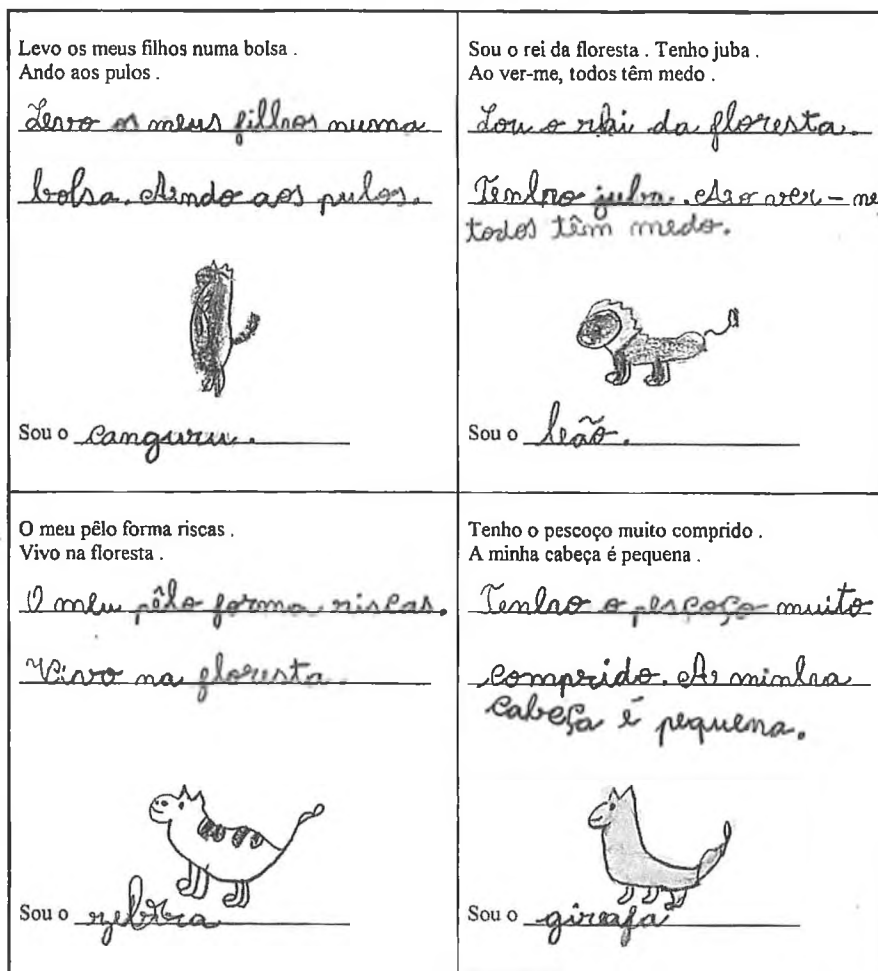 Levo os meus filhos numa bolsa .
Ando aos pulos .
Levo os meus filhos numa
bolsa. Ando aos pulos.
Sou o canguru.
Sou o rei da floresta . Tenho juba .
Ao ver-me, todos têm medo .
Sou o rei da floresta.
Tenho juba. Ao ver-me
todos têm medo.
Sou o leão.
O meu pêlo forma riscas .
Vivo na floresta .
O meu pêlo forma riscas.
Vivo na floresta.
Sou o zebra
Tenho o pescoço muito comprido .
A minha cabeça é pequena .
Tenho o pesçoço muito
comprido. A minha
cabeça é pequena.
Sou o girafa